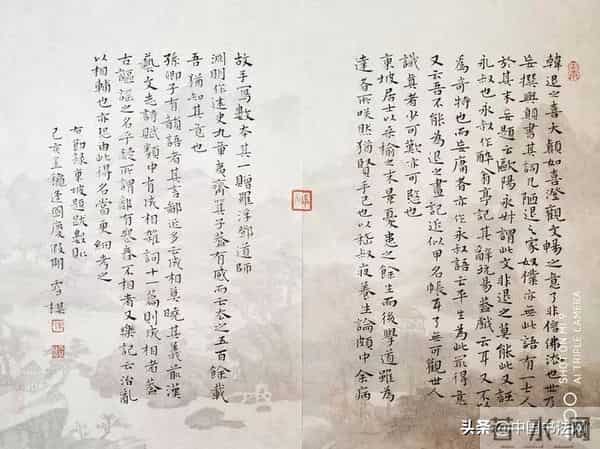 韓退之喜大顛如喜澄觀文暢之意了非信佛法也世乃
妄撰與顛書其詞凡陋退之家奴僕亦無此語有一士人
於其末妄題云歐陽永叔謂此文非退之莫能此又誣
永叔也永叔作醉翁亭記其辭玩易蓋戲云耳又不以
為奇特也而妄庸者亦作永叔語云平生為此最得意
又云吾不能為退之畫記近似甲名帳耳了無可觀世人
識真者少可歎亦可愍也
東坡居士以桑榆之末景憂患之餘生而後學道雖為
達者所咲然猶賢乎已也以嵇叔夜養生論頗中余病
故手寫數本其一贈羅浮鄧道師
淵明作述史九章夷齊箕子蓋有感而云去之五百餘載
吾猶知其意也
孫卿子有韻語者其言鄙近多云成相莫曉其義前漢
藝文志詩賦類中有成相雜詞十一篇則成相者蓋
古謳謠之名乎疑所謂鄰有喪舂不相者又樂記云治亂
以相輔也亦恐由此得名當更細考之
右節錄東坡題跋數則
己亥逢國慶假期
SHOT ON MI 9
AI TRIPLE CAMERA
头条 @中国书法网